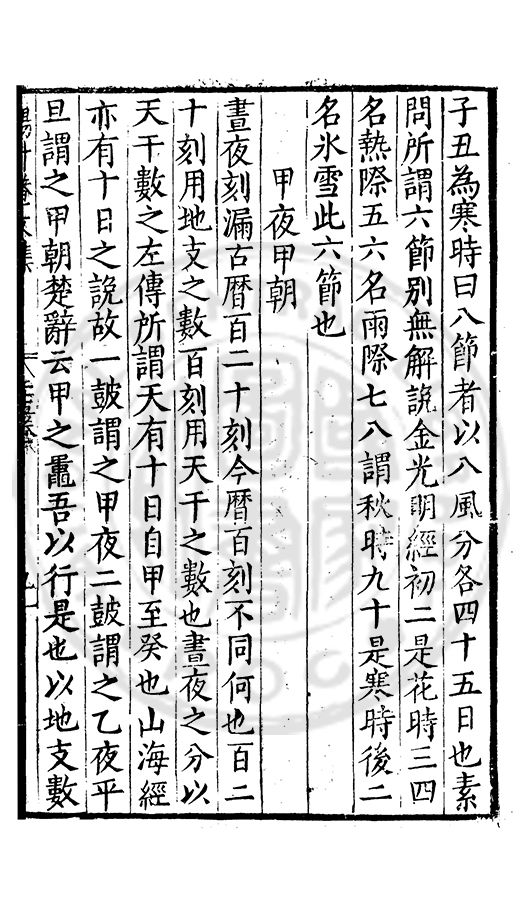 子丑為寒時曰八節者以八風分各四十五日也素
問所謂六節別無解說金光明經初二是花時三四
名熱際五六名雨際七八謂秋時九十是寒時後二
名氷雪此六節也
甲夜甲朝
晝夜刻漏古曆百二十刻今曆百刻不同何也百二
十刻用地支之數百刻用天干之數也晝夜之分以
天干數之左傳所謂天有十日自甲至癸也山海經
亦有十日之說故一鼓謂之甲夜二鼓謂之乙夜平
旦謂之甲朝楚辭云甲之鼂吾以行是也以地支數